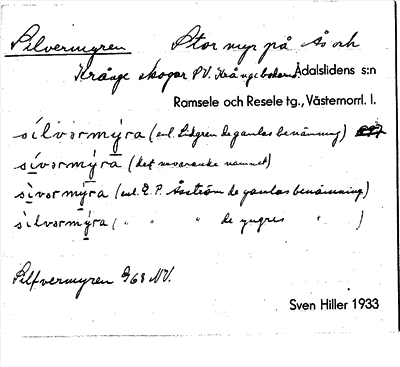 Silvermyren Stor myr på Ås och
Krånge skogar PV. Krångebodarna Ådalslidens s:n
Ramsele och Resele tg., Västernorrl. l.
sílvərmỳra (enl. Lidgren de gamlas benämning)
sívərmỳra (det nuvarande namnet)
sìvərmỳra (enl. E. P. Åström de gamlas benämning)
sìlvərmýra ( " " " de yngres " )
Silfvermyren 9/68 NV.
Sven Hiller 1933